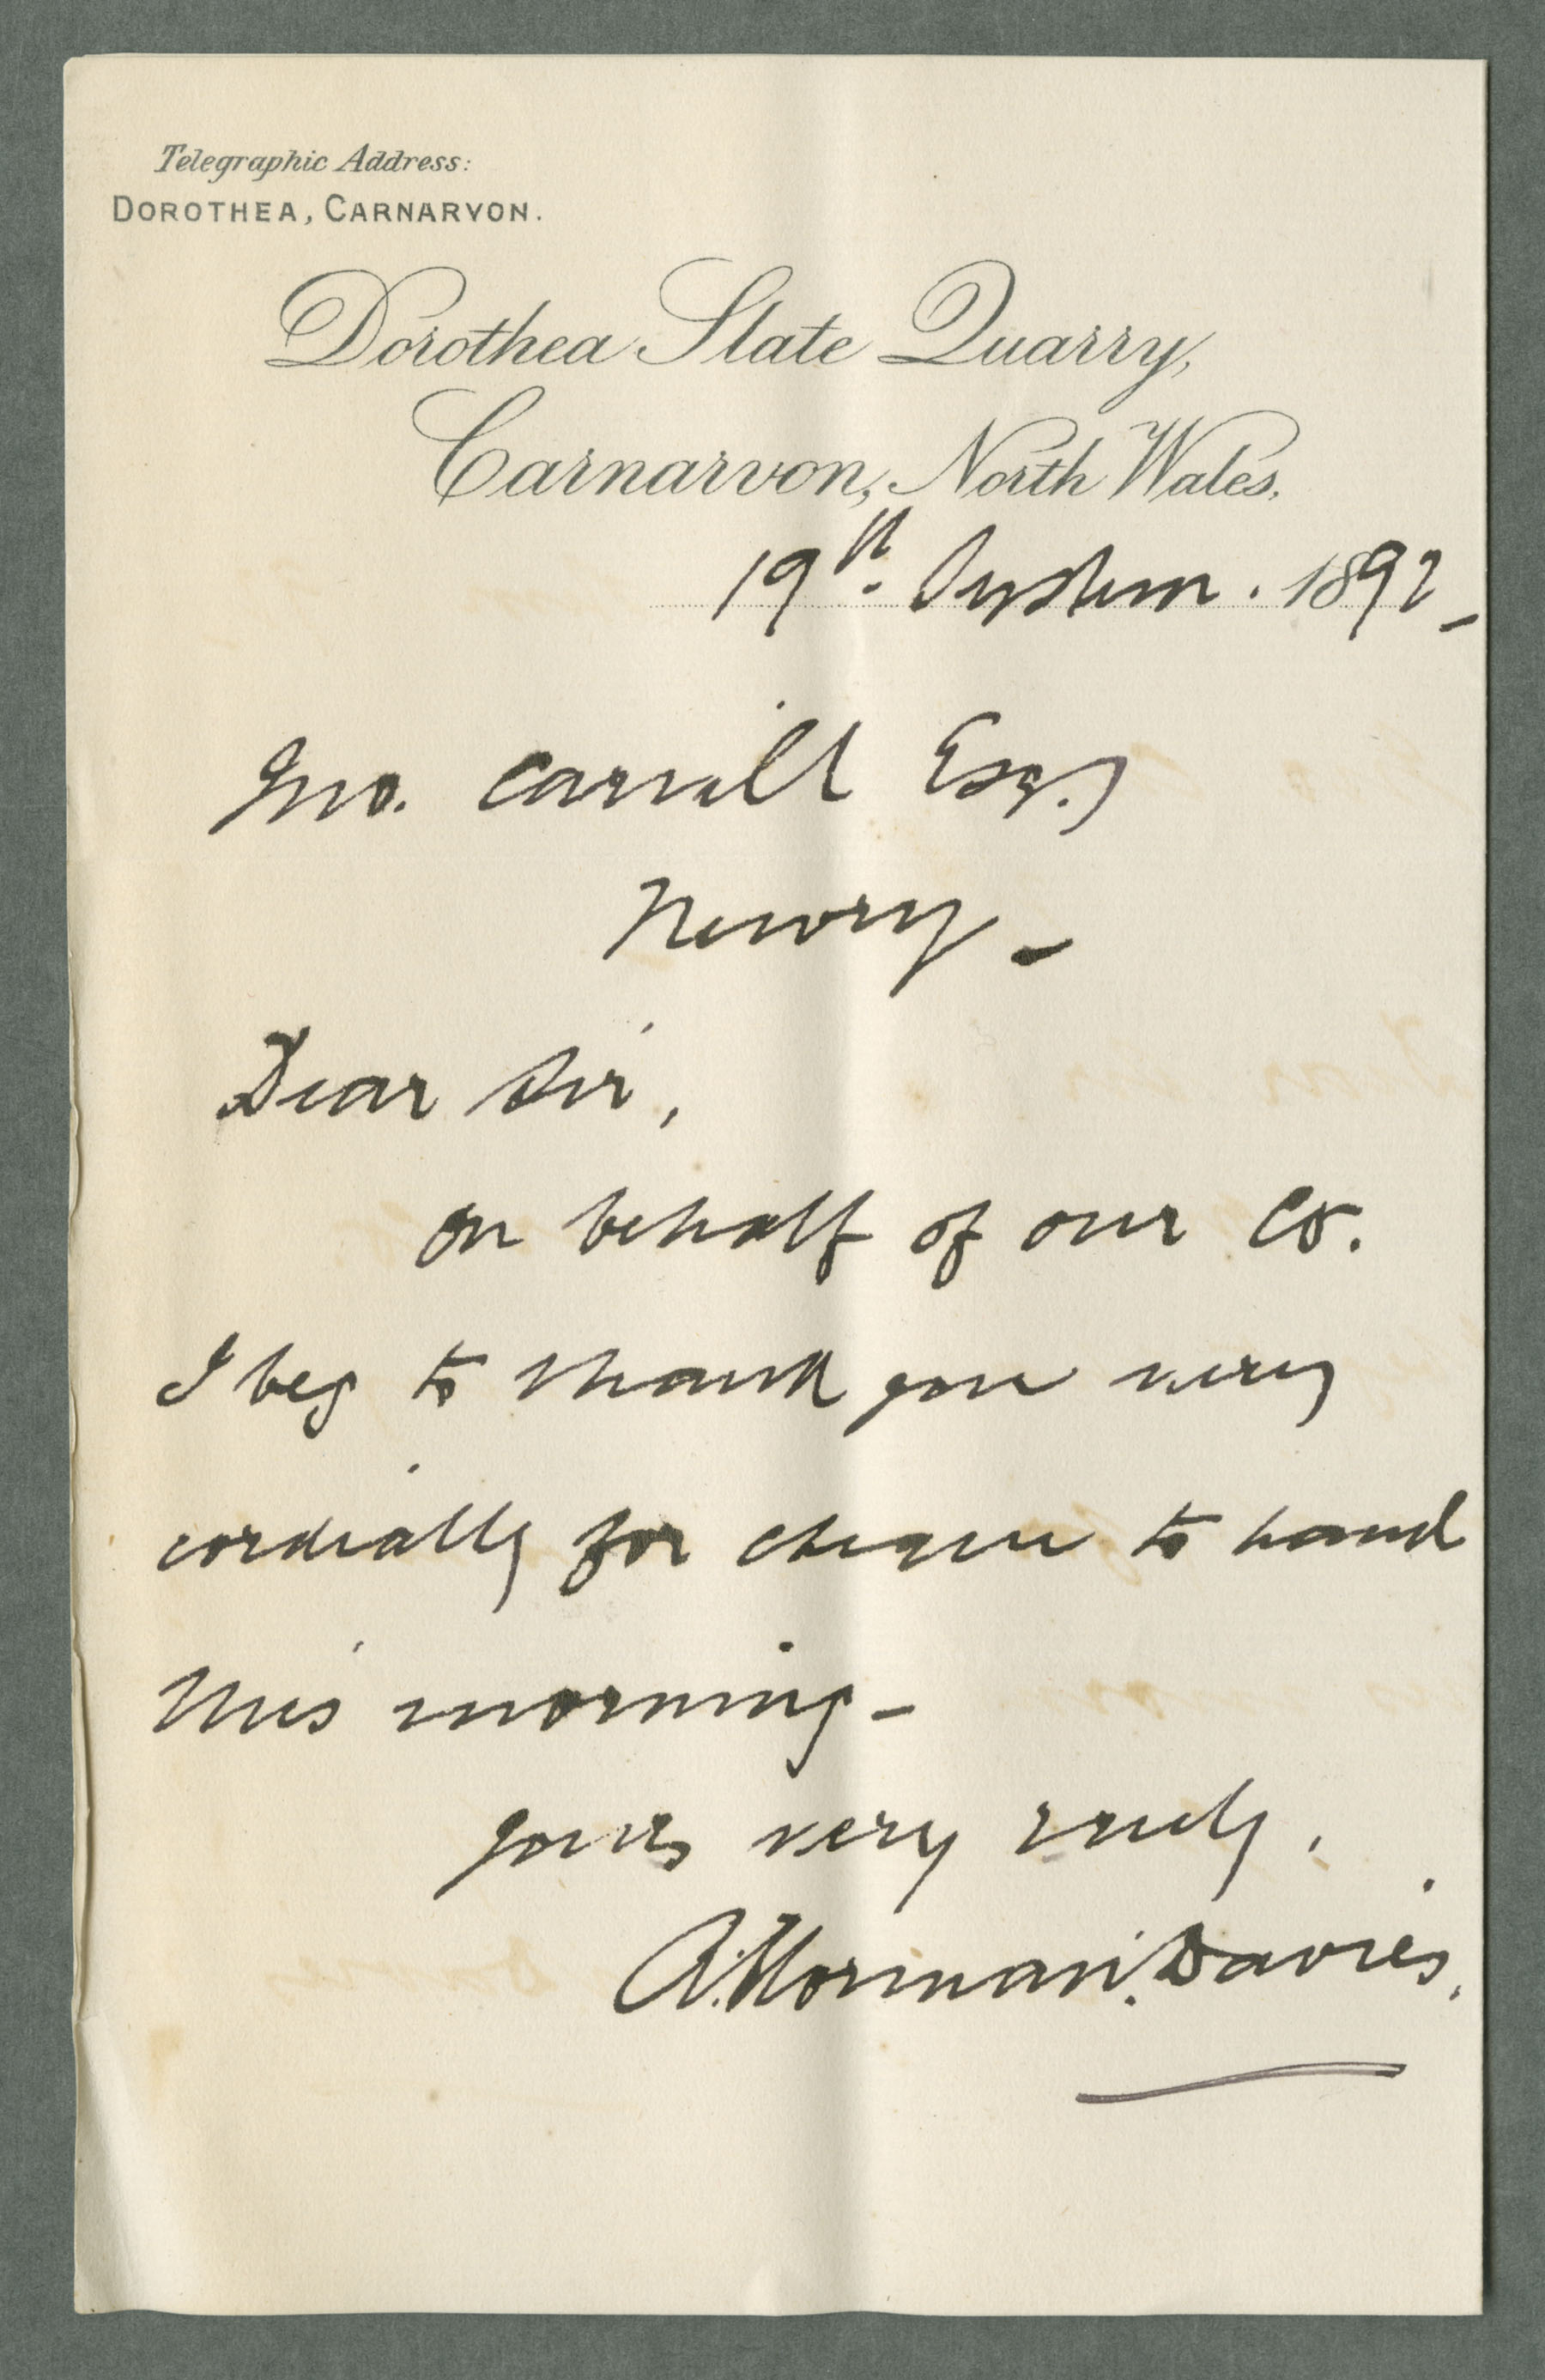 Telegraphic Address:
DOROTHEA, CARNARVON.
Dorothea Slate Quarry,
Carnarvon, North Wales.
19th. Septem. 1892_
Jno. Carvill Esq.
Newry_
Dear Sir,
On behalf of our Co.
I beg to thank you very
cordially for cheque to hand
this morning_
yours very truly,
A. Norman. Davies.